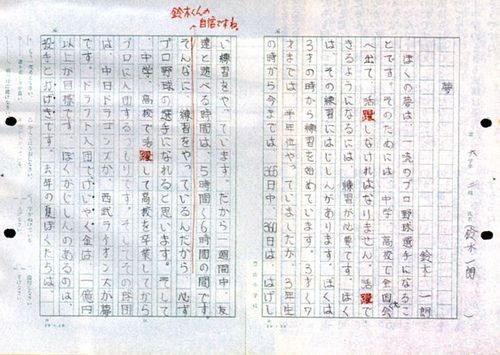 夢
鈴木一朗
ぼくの夢は、一流のプロ野球選手になるこ
とです。そのためには、中学、高校で全国大会
へ出て、活躍しなければなりません。活躍で
きるようになるには、練習が必要です。ぼく
は、その練習にはじしんがあります。ぼくは
3才の時から練習を始めています。3才~7
才までは、半年位やっていましたが、3年生
の時から今までは、365日中、360日は、はげし
い練習をやっています。だから一週間中、友
達と遊べる時間は、5時間~6時間の間です。
そんなに、練習をやっているんだから、必ず
プロ野球の選手になれると思います。そして、
中学、高校で活躍して高校を卒業してから
プロに入団するつもりです。そしてその球団
は、中日ドラゴンズか、西武ライオンズが夢
です。ドラフト入団でけいやく金は、一億円
以上が目標です。ぼくがじしんのあるのは、
投手と打げきです。去年の夏ぼくたちは、
鈴木くんの
自信ですね。
六年 二組 氏名 鈴木一朗